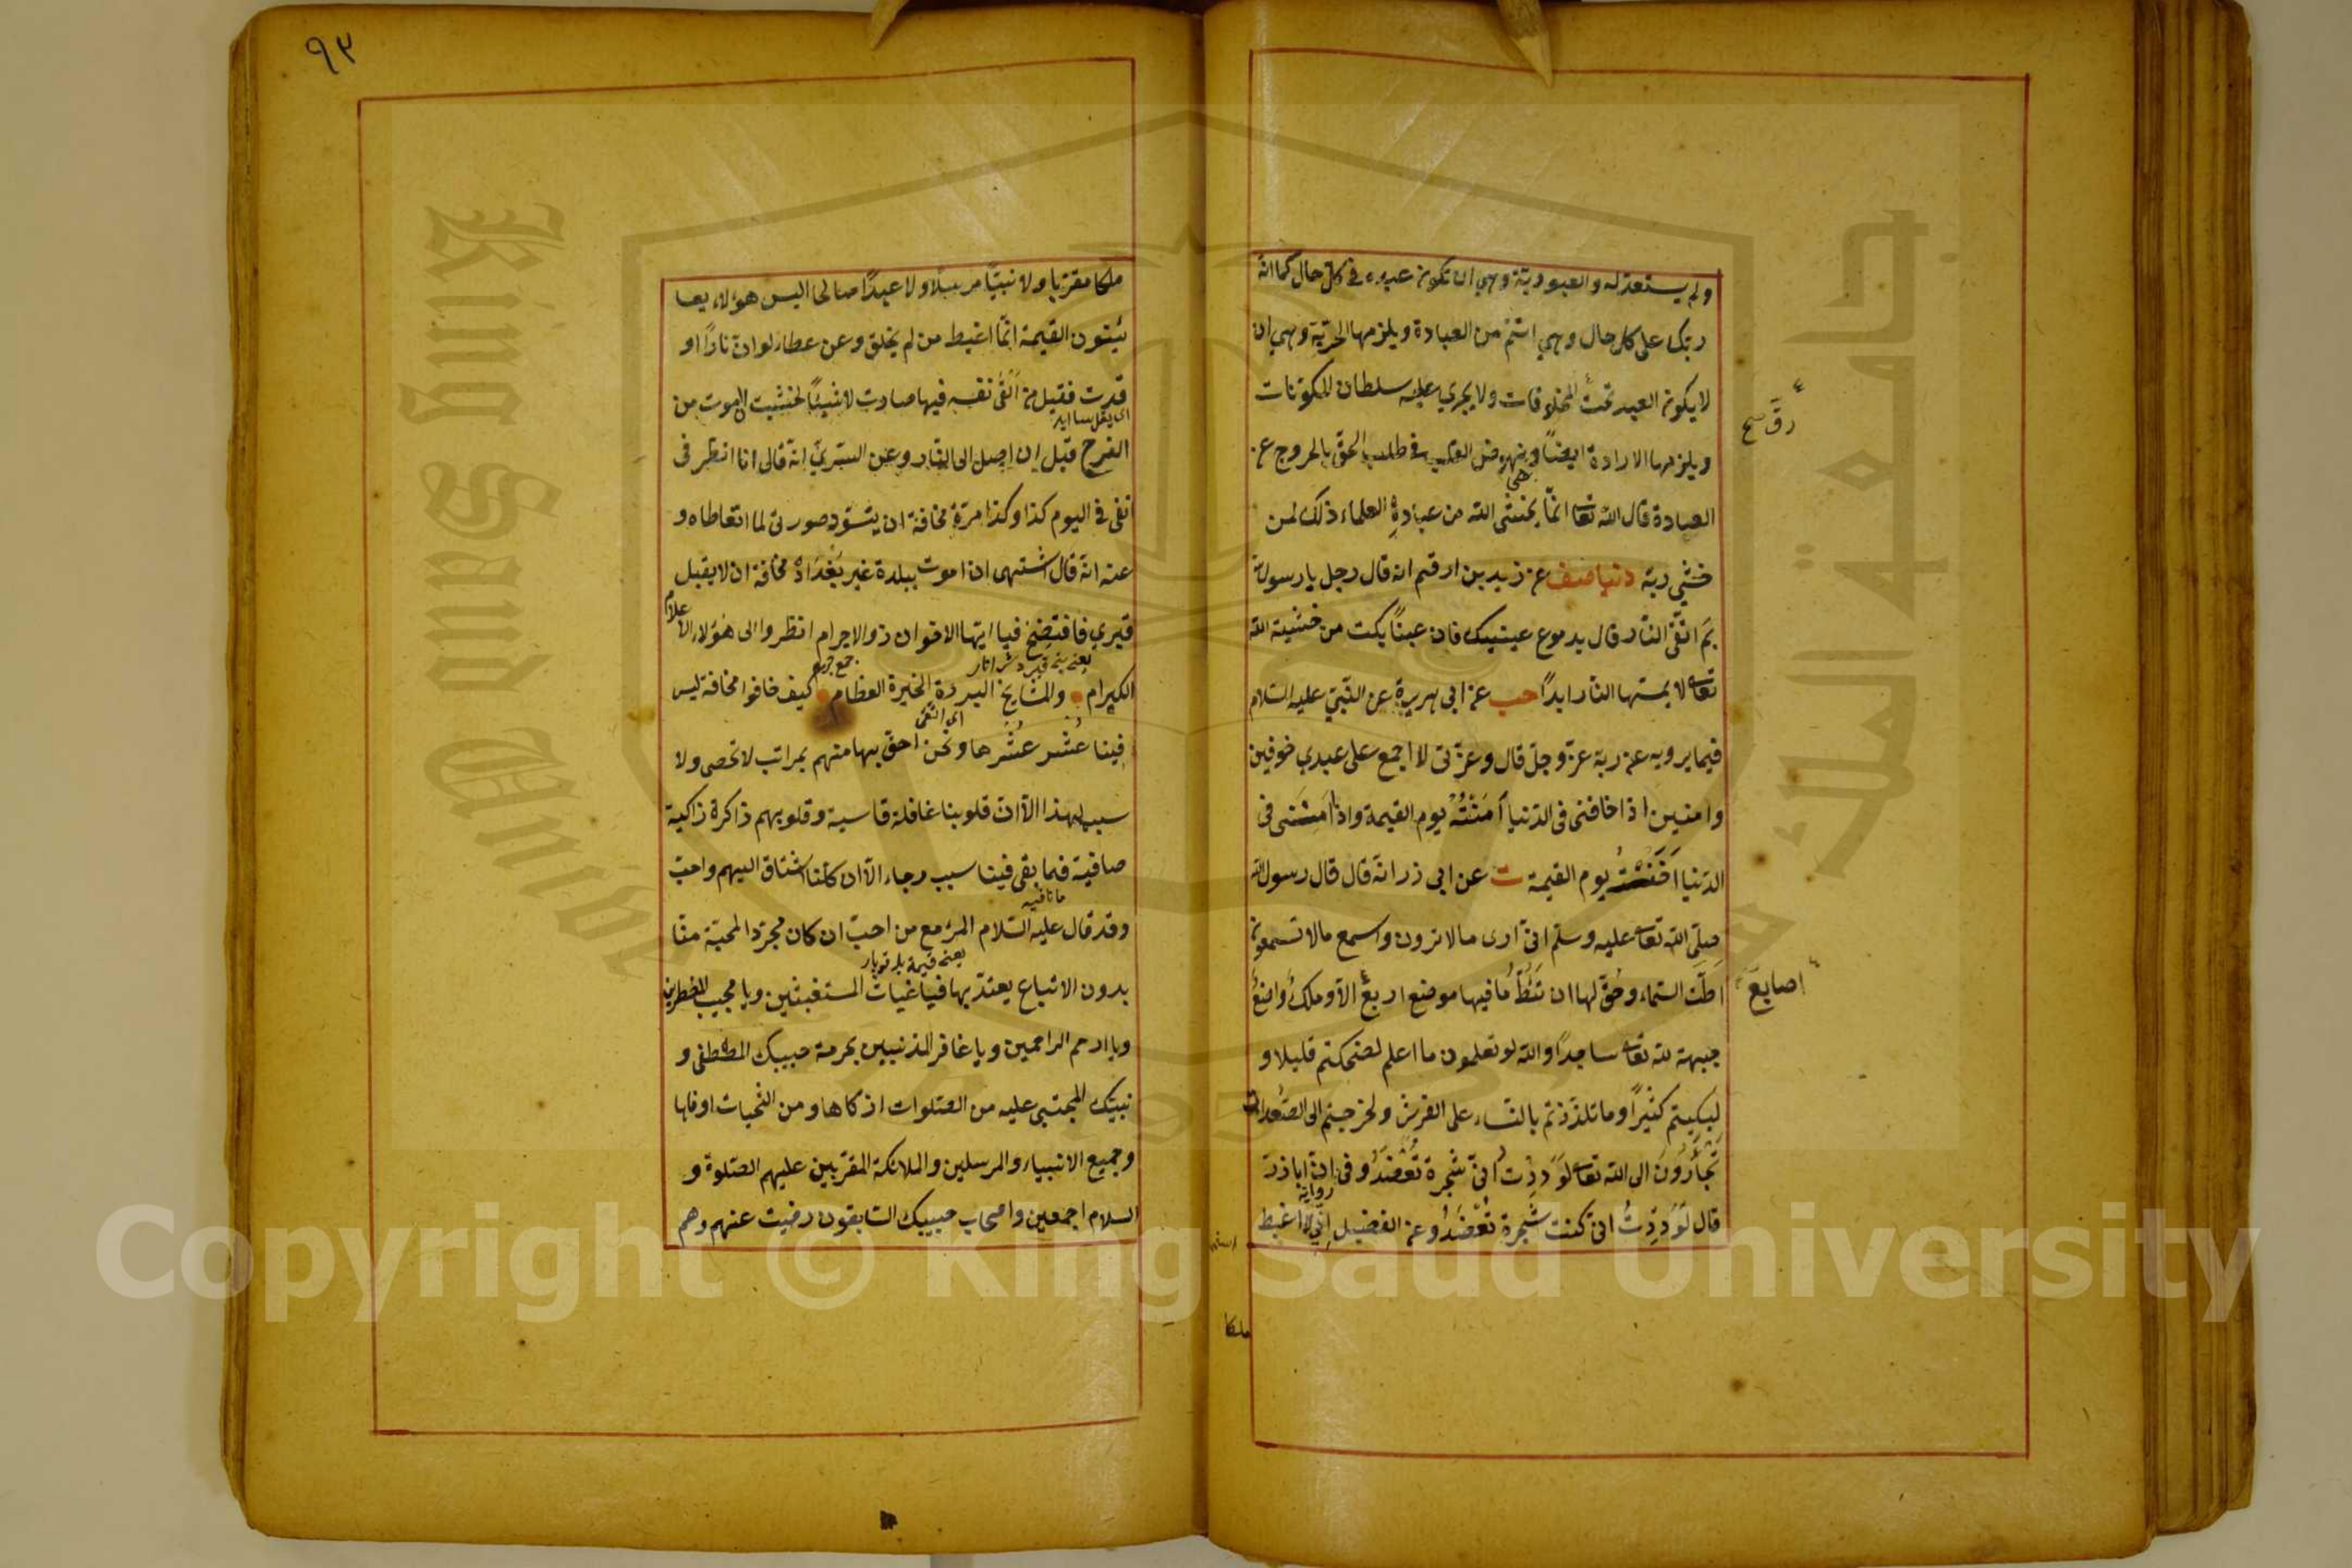 ولم يستعذ له والعبودية وهي ان تكون عبده في كل حال كما انه
ربك على كل حال وهي اتم من العبادة ويلزمها الحرية وهي ان
لا يكون العبد تحت المخلوقات ولا يجري عليه سلطان المكونات
رقّ صح
ويلزمها الارادة ايضاً وهي نهوض القلب في طلب الحق بالخروج عن
العبادة قال الله تعا انّما يخشى الله من عباده العلماء ذلك لمن
خشي ربه دنيا صف عن زيد بن ارقم انه قال رجل يا رسول الله
بمَ اتّقى النار قال بدموع عينيك فان عيناً بكت من خشية الله
تعا لا يمسّها النار ابداً حب عن ابي هريرة عن النبي عليه السلام
فيما يرويه عن ربه عزّ وجلّ قال وعزّتى لا اجمع على عبدي خوفين
وامنين اذا خافنى فى الدنيا اَمَنْتُهُ يوم القيمة واذا اَمِنَنى فى
الدنيا اَخَفْتُهُ يوم القيمة ت عن ابى ذر انه قال قال رسول الله
صلّى الله تعا عليه وسلم انى ارى ما لا ترون واسمع ما لا تسمعون
اَطَّت السماء وحُقّ لها ان تَئِطّ ما فيها موضع اربع الاّ وملكٌ واضعٌ
اصابعَ
جبهته لله تعا ساجداً والله لو تعلمون ما اعلم لضحكتم قليلا و
لبكيتم كثيراً وما تلذذتم بالنساء على الفرش ولخرجتم الى الصُعُدات
تَجأَرُونَ الى الله تعا لَوَدِدْتُ انّى شجرة تُعْضَدُ وفى رواية انّ ابا ذرّ
قال لَوَدِدْتُ انى كنت شجرة تُعْضَدُ وعن الفضيل اِنّي لا اغبط
ملكا
٩٣
ملكا مقربا ولا نبيّاً مرسلاً ولا عبداً صالحا اليس هؤلاء يعا
يئنون القيمة انّما اغبط من لم يخلق وعن عطاء لو انّ ناراً او
قدت فقيل من اَلْقى نفسه فيها صار لا شيئاً لخشيت ان اموت من
الفرح قبل ان اصل الى النار وعن السّريّ انه قال انا انظر فى
انفى فى اليوم كذا وكذا مرّة مخافة ان يتسوّد صورتى لما اتعاطاه و
عنه انه قال اشتهى ان اموت ببلدة غير بَغْدَاد مخافة ان لا يقبل
قبري فافتضح فيا ايّها الاخوان ذو الاجرام انظروا الى هؤلاء الاعلام
جمع جرم
الكرام والمشايخ البررة الخيرة العظام كيف خافوا مخافة ليس
فينا عُشْر عُشْرها ونحن احقّ بها منهم بمراتب لا تحصى ولا
سبب لهذا الاّ انّ قلوبنا غافلة قاسية وقلوبهم ذاكرة زاكية
صافية فما بقى فينا سبب رجاء الاّ ان كلّنا اشتاق اليهم واحبّ
ما نافيه
وقد قال عليه السّلام المرء مع من احبّ ان كان مجرّد المحبّة منّا
بدون الاتباع يعتدّ بها فيا غياث المستغيثين ويا مجيب المضطرين
ويا ارحم الراحمين ويا غافر المذنبين بحرمة حبيبك المصطفى و
نبيّك المجتبى عليه من الصلوات ازكاها ومن التحيات اوفاها
وجميع الانبياء والمرسلين والملائكة المقرّبين عليهم الصّلوة و
السلام اجمعين واصحاب حبيبك السّابقون رضيت عنهم وهم
جامعة الملك
King Saud Univ
Copyright © King Saud University